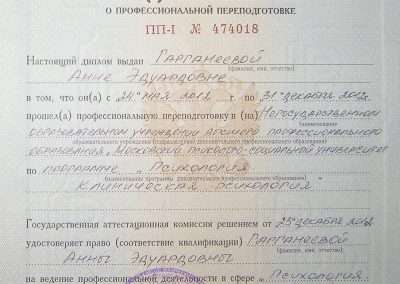 О ПРОФЕССИОНАЛЬНОЙ ПЕРЕПОДГОТОВКЕ
ПП-I № 474018
Настоящий диплом выдан Гарганеевой
(фамилия, имя, отчество)
Анне Эдуардовне
в том, что он(а) с „24“ мая 2012 г. по „31“ декабря 2012г.
прошел(а) профессиональную переподготовку в (на) Негосударственном
образовательном учреждении высшего профессионального
образовательного учреждения (подразделения) дополнительного профессионального образования)
образования „Московский психолого-социальный университет
по программе „Психология
(наименование программы дополнительного профессионального образования)
Клиническая психология“
Государственная аттестационная комиссия решением от „25“ декабря 2012
удостоверяет право (соответствие квалификации) Гарганеевой
(фамилия, имя, отчество)
Анны Эдуардовны
на ведение профессиональной деятельности в сфере „Психология.